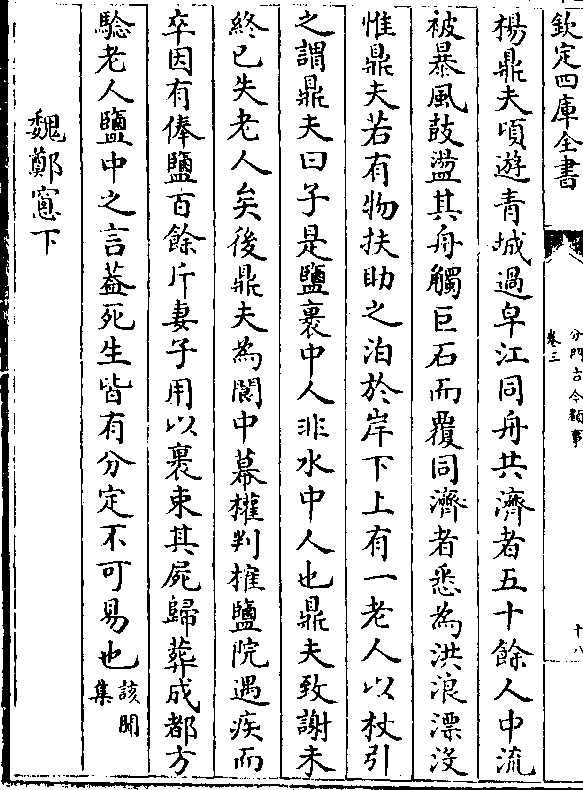 欽定四庫全書
分門古今類事
卷三
十八
楊鼎夫頃遊青城過皁江同舟共濟者五十餘人中流
被暴風鼓盪其舟觸巨石而覆同濟者悉為洪浪漂沒
惟鼎夫若有物扶助之泊於岸下上有一老人以杖引
之謂鼎夫曰子是鹽裹中人非水中人也鼎夫致謝未
終已失老人矣後鼎夫為閬中幕權判榷鹽院遇疾而
卒因有俸鹽百餘斤妻子用以裹束其屍歸葬成都方
驗老人鹽中之言葢死生皆有分定不可易也該聞集
魏鄭窻下